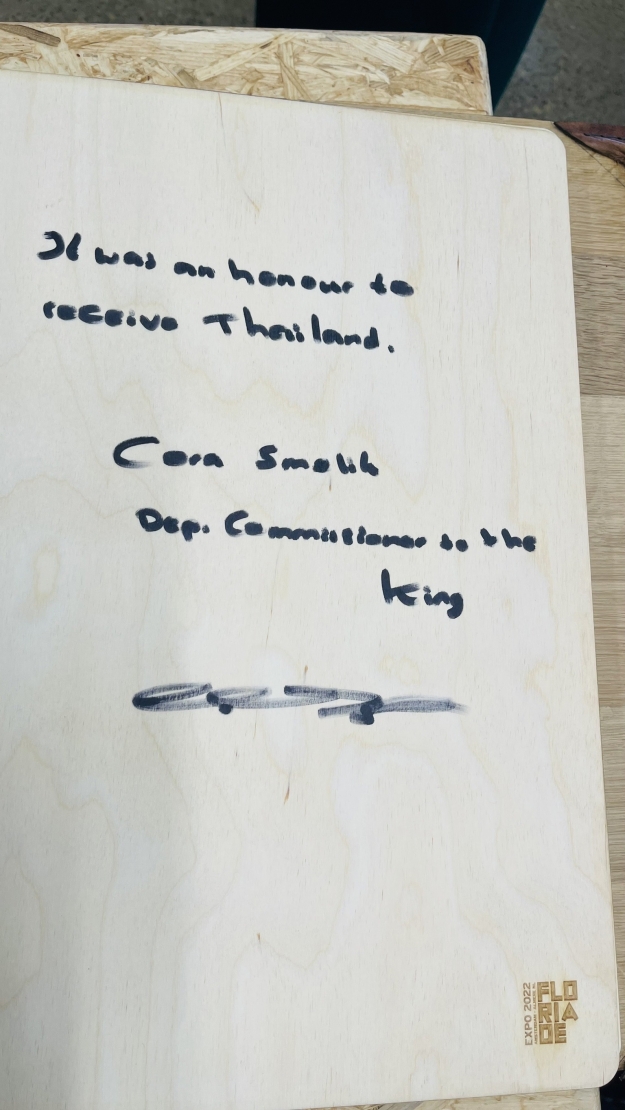 It was an honour to
receive Thailand.
Cora Smolik
Dep. Commissioner to the
King
EXPO 2022
FLO
RIA
DE